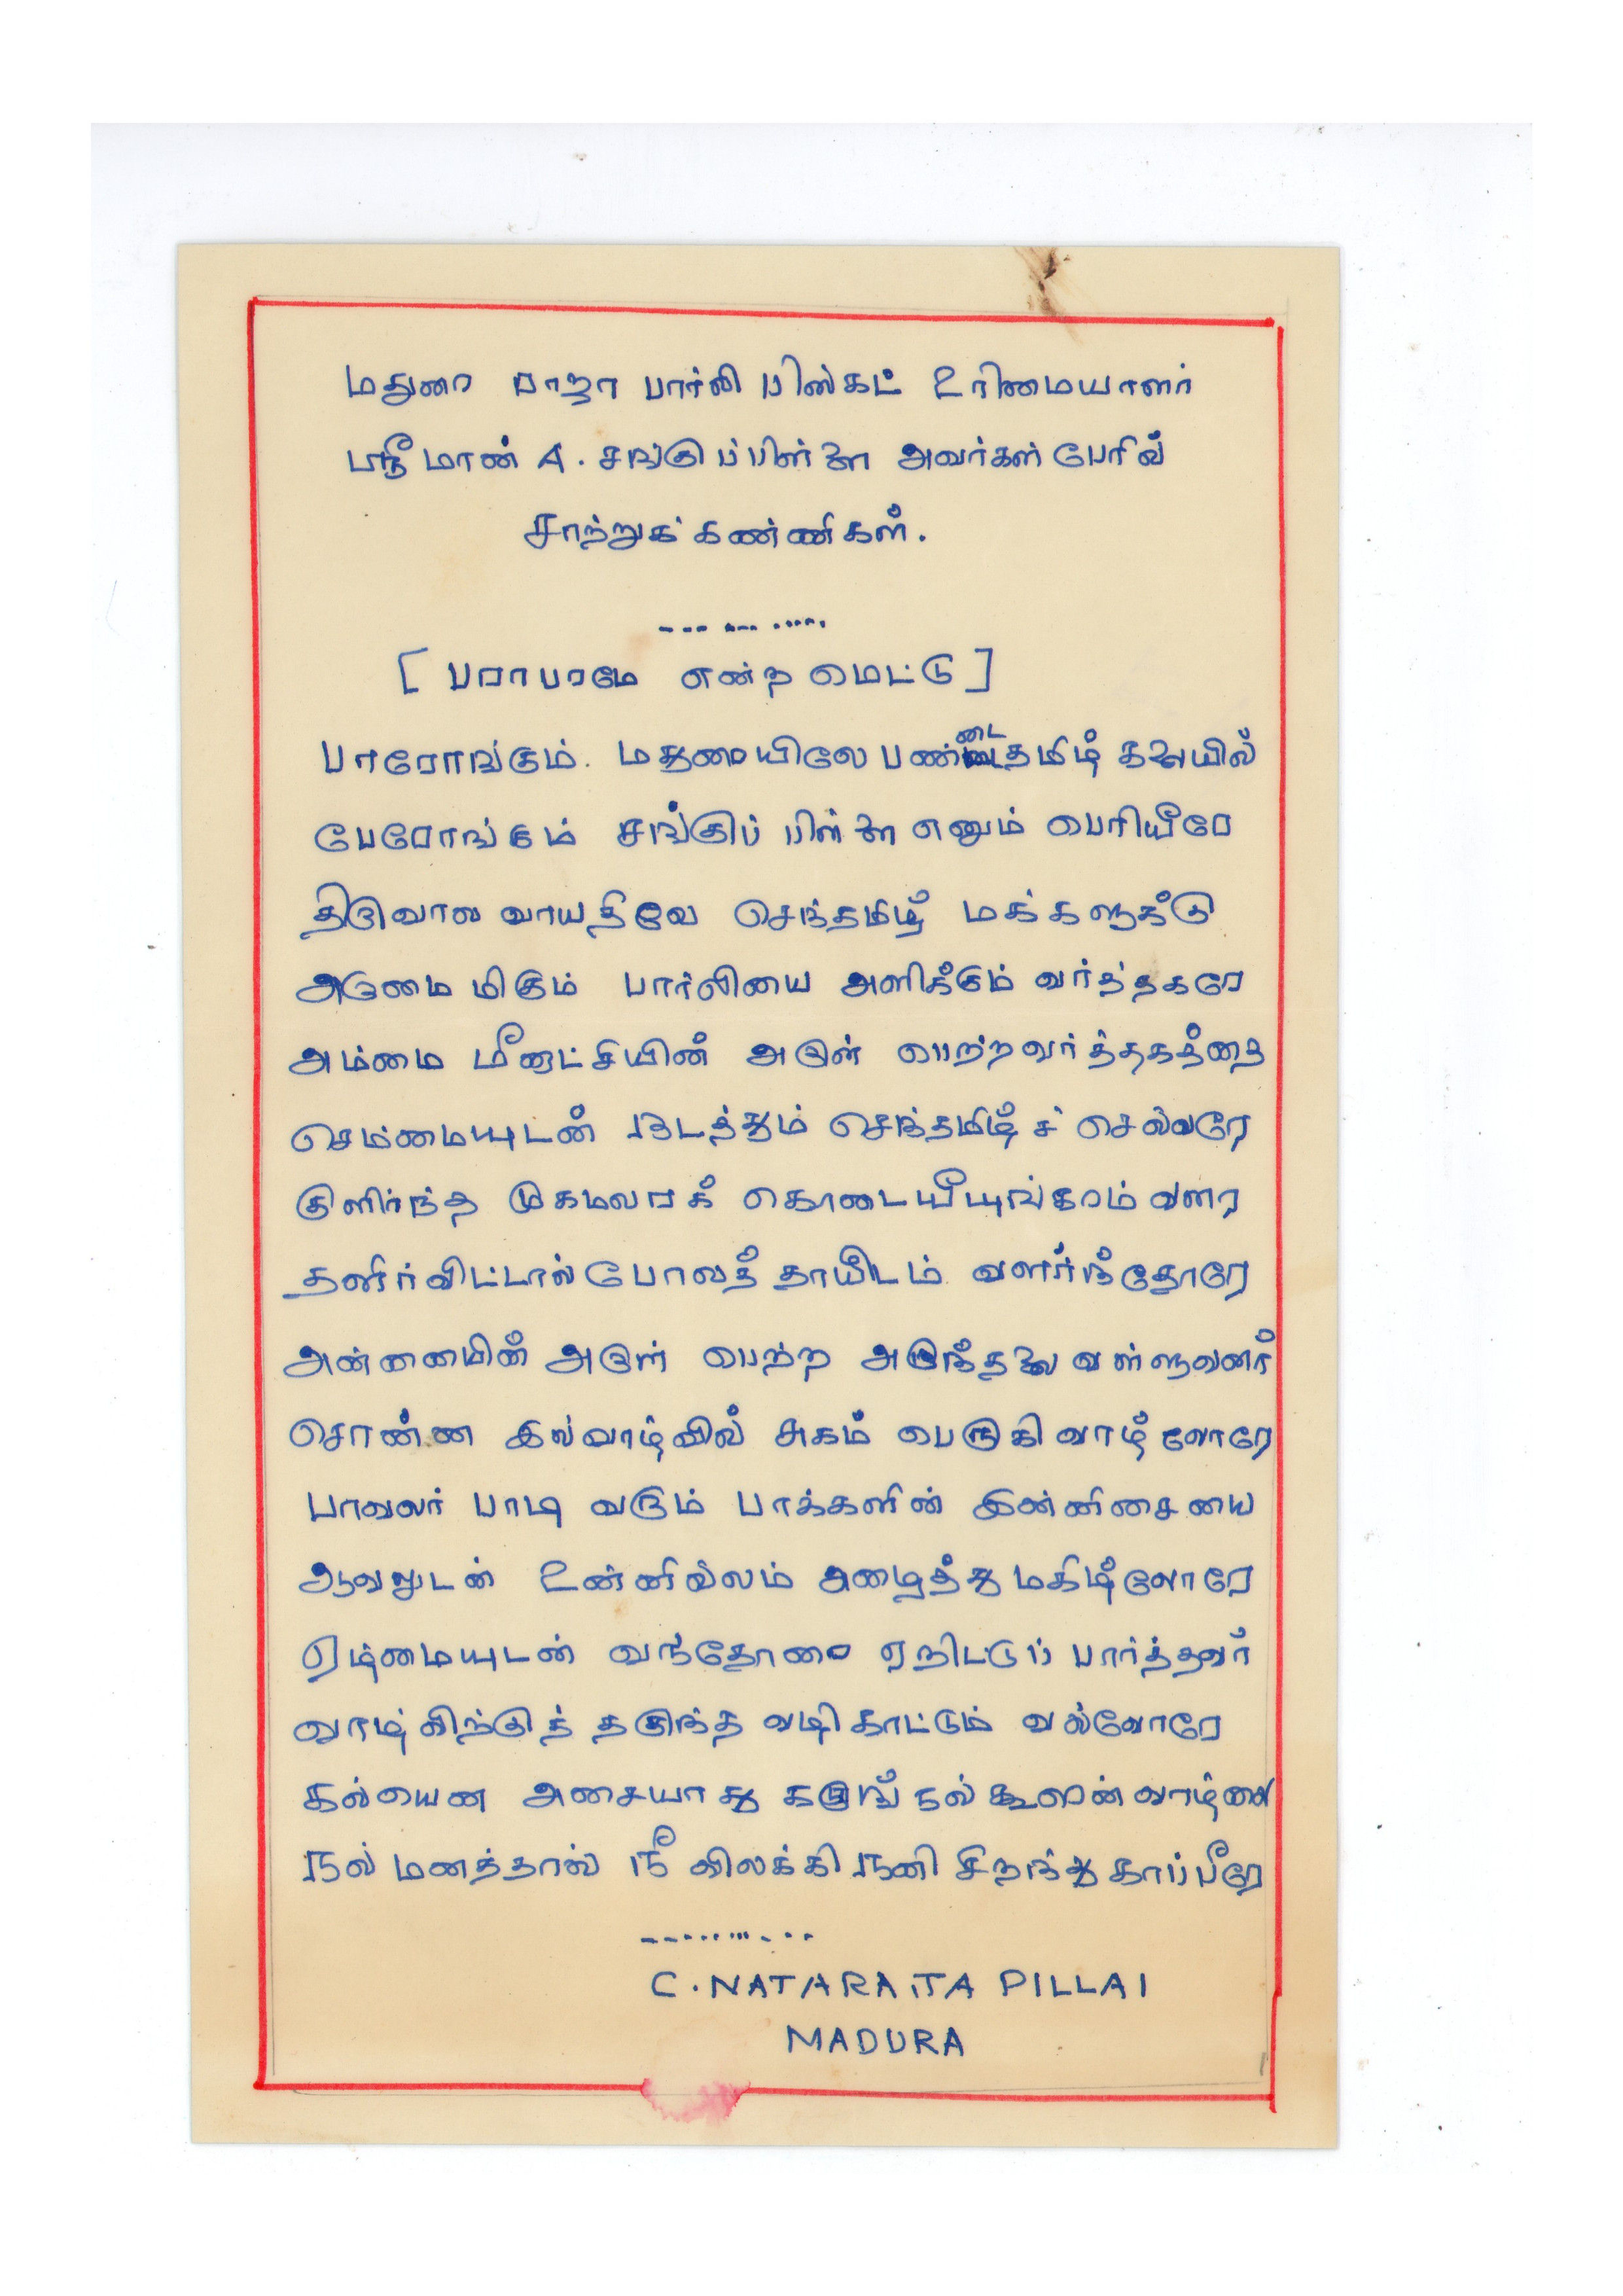 மதுரை ராஜா பார்லி பிஸ்கட் உரிமையாளர்
ஸ்ரீமான் A. சங்குப்பிள்ளை அவர்கள் பேரில்
சாற்றுக் கண்ணிகள்.
[ பராபரமே என்ற மெட்டு ]
பாரோங்கும். மதுரையிலே பண்டைதமிழ் கலையில்
பேரோங்கும் சங்குப் பிள்ளை எனும் பெரியீரே
திருவால வாயதிலே செந்தமிழ் மக்களுக்கு
அருமை மிகும் பார்லியை அளிக்கும் வர்த்தகரே
அம்மை மீனாட்சியின் அருள் பெற்ற வர்த்தகத்தை
செம்மையுடன் நடத்தும் செந்தமிழ்ச் செல்வரே
குளிர்ந்த முகமலரக் கொடையீயுங்கரம் வளர
தளிர்விட்டால் போலத் தாயிடம் வளர்ந்தோரே
அன்னையின் அருள் பெற்ற அருந்தலை வள்ளுவனார்
சொன்ன இல்வாழ்வில் சுகம் பெருகி வாழ்வோரே
பாவலர் பாடி வரும் பாக்களின் இன்னிசையை
ஆவலுடன் உன்னில்லம் அழைத்து மகிழ்வோரே
ஏழ்மையுடன் வந்தோரை ஏறிட்டுப் பார்த்தவர்
வாழ்விற்குத் தகுந்த வழி காட்டும் வல்லோரே
கல்யென அசையாது கருங் கல் வாழ்வை
நல் மனத்தால் நீ விலக்கி நனி சிறந்து காப்பீரே
C. NATARAJA PILLAI
MADURA